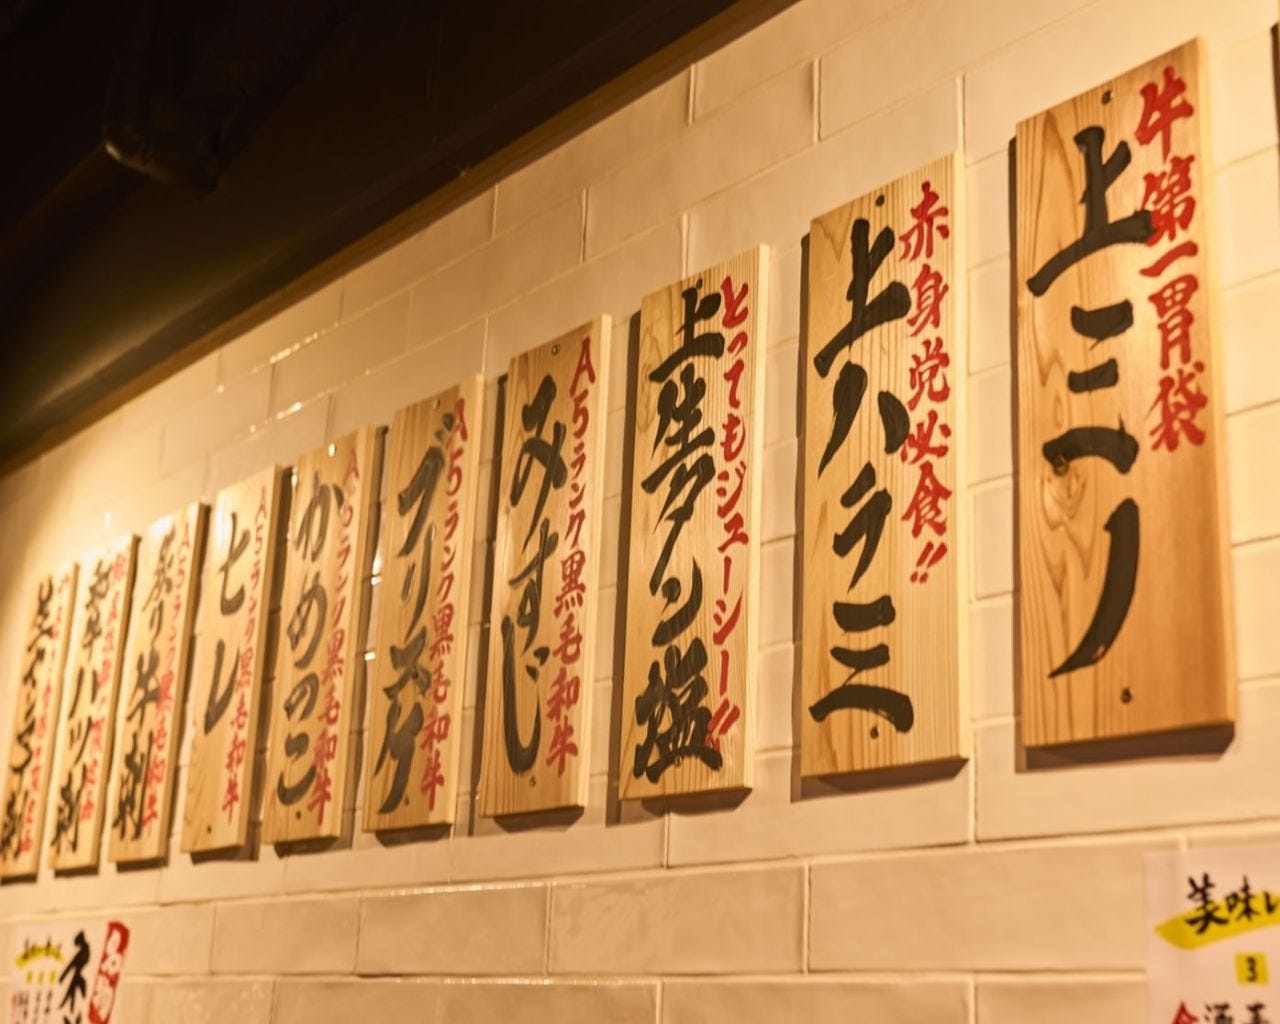 牛第一胃袋
上ミノ
赤身党必食!!
上ハラミ
とってもジューシー!!
上生タン塩
A5ランク黒毛和牛
みすじ
A5ランク黒毛和牛
ブリスケ
A5ランク黒毛和牛
かめのこ
A5ランク黒毛和牛
ヒレ
A5ランク黒毛和牛
炙り牛刺
ハツ刺
美味い
3